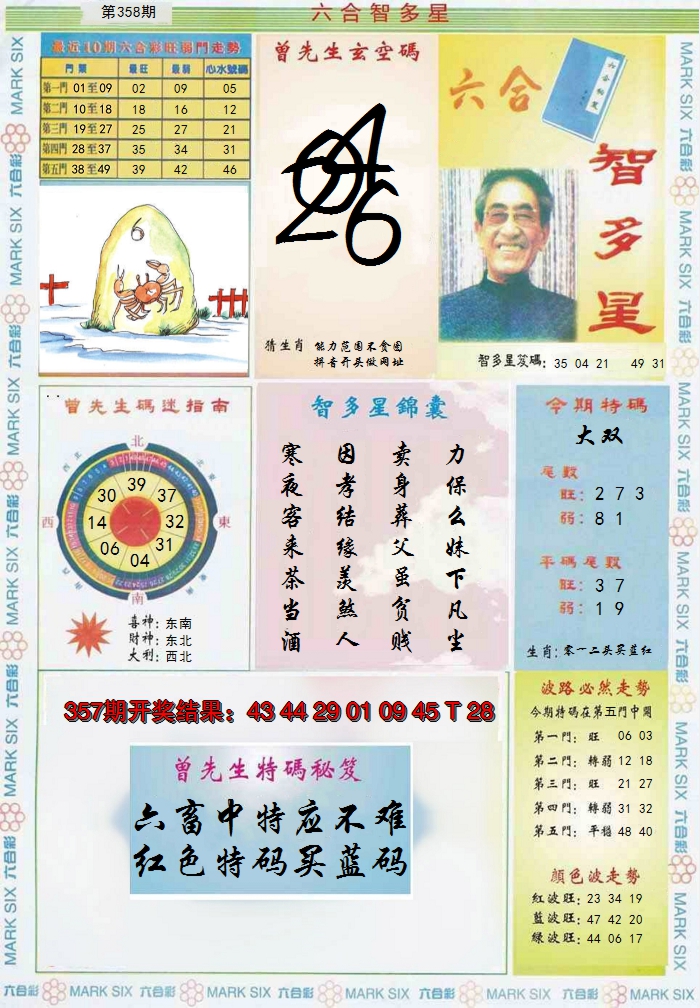 第358期
六合智多星
最近10期六合彩旺弱門走勢
門類 最旺 最弱 心水號碼
第一門 01至09 02 09 05
第二門 10至18 18 16 12
第三門 19至27 25 27 21
第四門 28至37 35 34 31
第五門 38至49 39 42 46
6
曾先生玄空碼
猜生肖 能力范围不贪图
拼音开头做网址
六合
智多星
智多星笈碼: 35 04 21 49 31
曾先生碼迷指南
北
39
30 37
西 14 32 東
06 31
04
南
喜神: 东南
財神: 东北
大利: 西北
智多星錦囊
寒夜客来茶当酒
因孝结缘羡煞人
卖身葬父虽贫贱
力保么妹下凡尘
今期特碼
大双
尾數
旺: 2 7 3
弱: 8 1
平碼尾數
旺: 3 7
弱: 1 9
生肖: 零一二头买蓝红
357期开奖结果：43 44 29 01 09 45 T 28
曾先生特碼秘笈
六畜中特应不难
红色特码买蓝码
波路必然走勢
今期特碼在第五門中開
第一門: 旺 06 03
第二門: 轉弱 12 18
第三門: 旺 21 27
第四門: 轉弱 31 32
第五門: 平穩 48 40
顏色波走勢
紅波旺: 23 34 19
藍波旺: 47 42 20
綠波旺: 44 06 17
MARK SIX 六合彩 MARK SIX 六合彩 MARK SIX 六合彩 MARK SIX 六合彩 MARK SIX